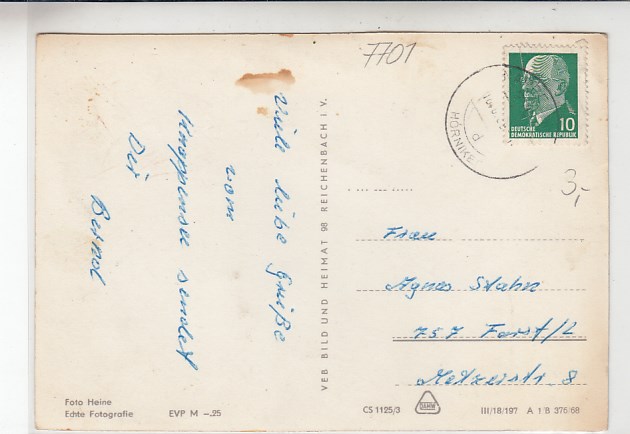 7701
Viele liebe Grüße
vom
Knappensee sendet
Dir
Bernd
VEB BILD UND HEIMAT 98 REICHENBACH I. V.
HÖRNIKE
DEUTSCHE
DEMOKRATISCHE REPUBLIK
10
3,-
Frau
Agnes
757 Forst/L
8
Foto Heine
Echte Fotografie
EVP M –.25
CS 1125/3
III/18/197 A 1/B 376/68